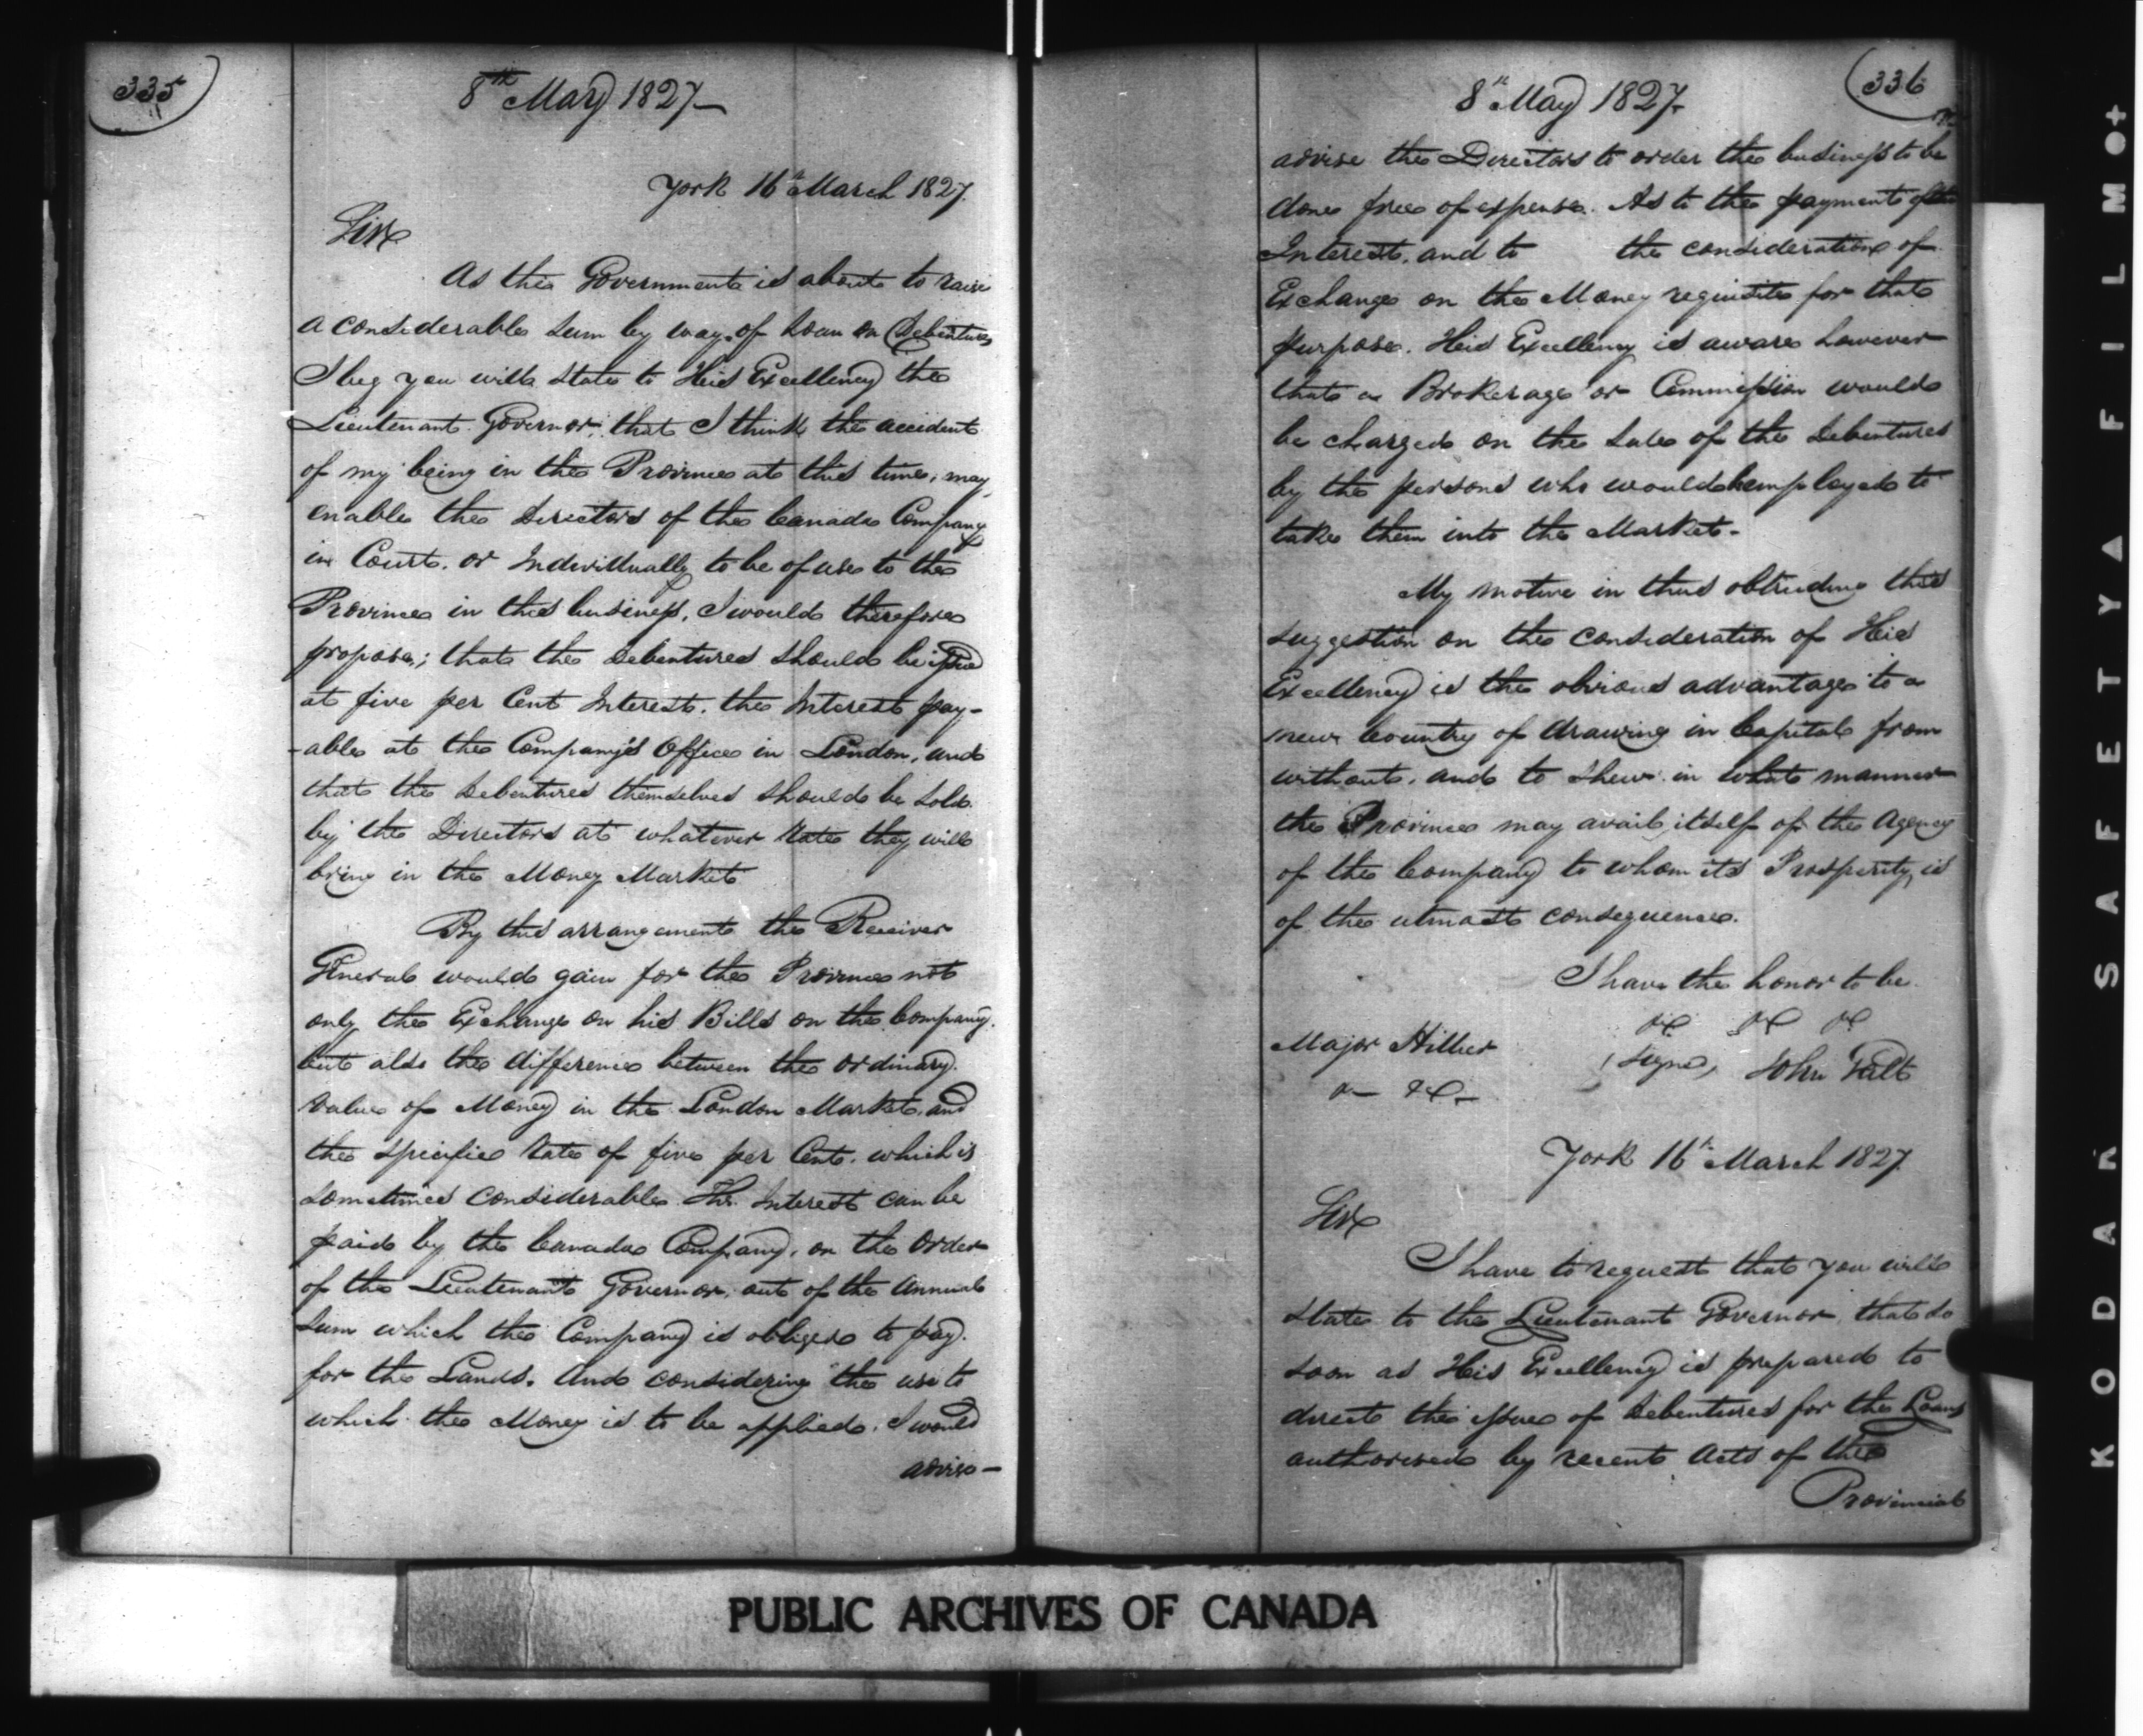 335
8th May 1827
York 16th March 1827.
Sir
As this Government is about to raise
a considerable sum by way of Loan on Debentures
I beg you will state to His Excellency the
Lieutenant Governor, that I think the accident
of my being in the Province at this time, may
enable the Directors of the Canada Company
in Court. or Individually to be of use to the
Province in this business, I would therefore
propose; that the Debentures should be issued
at five per Cent Interest. the Interest pay-
-able at the Company's Office in London, and
that the Debentures themselves should be sold
by the Directors at whatever rate they will
bring in the Money Market
By this arrangement the Receiver
General would gain for the Province not
only the Exchange on his Bills on the Company.
but also the difference between the ordinary.
value of Money in the London Market, and
the specific rate of five per Cent. which is
sometimes considerable The Interest can be
paid by the Canada Company, on the Order
of the Lieutenant Governor, out of the Annual
Sum which the Company is obliged to pay.
for the Lands. And considering the use to
which the Money is to be applied. I would
advise -
336
8th May 1827.
advise the Directors to order the business to be
done free of expense. As to the payment of the
Interest, and to the consideration of
Exchange on the Money requisite for that
purpose. His Excellency is aware however
that a Brokerage or Commission would
be charged on the Sale of the Debentures
by the persons who would be employed to
take them into the Market -
My motive in thus obtruding this
suggestion on the consideration of His
Excellency is the obvious advantage to a
new Country of drawing in Capital from
without. and to shew in what manner
the Province may avail itself of the Agency
of the Company to whom its Prosperity, is
of the utmost consequence.
I have the honor to be.
&c &c &c
Major Hillier
(signed) John Galt
&c &c -
York 16th March 1827
Sir
I have to request that you will
state to the Lieutenant Governor, that so
soon as His Excellency is prepared to
direct the issue of Debentures for the Loans
authorised by recent Acts of the
Provincial
PUBLIC ARCHIVES OF CANADA
KODAK SAFETY ▲ FILM ●+